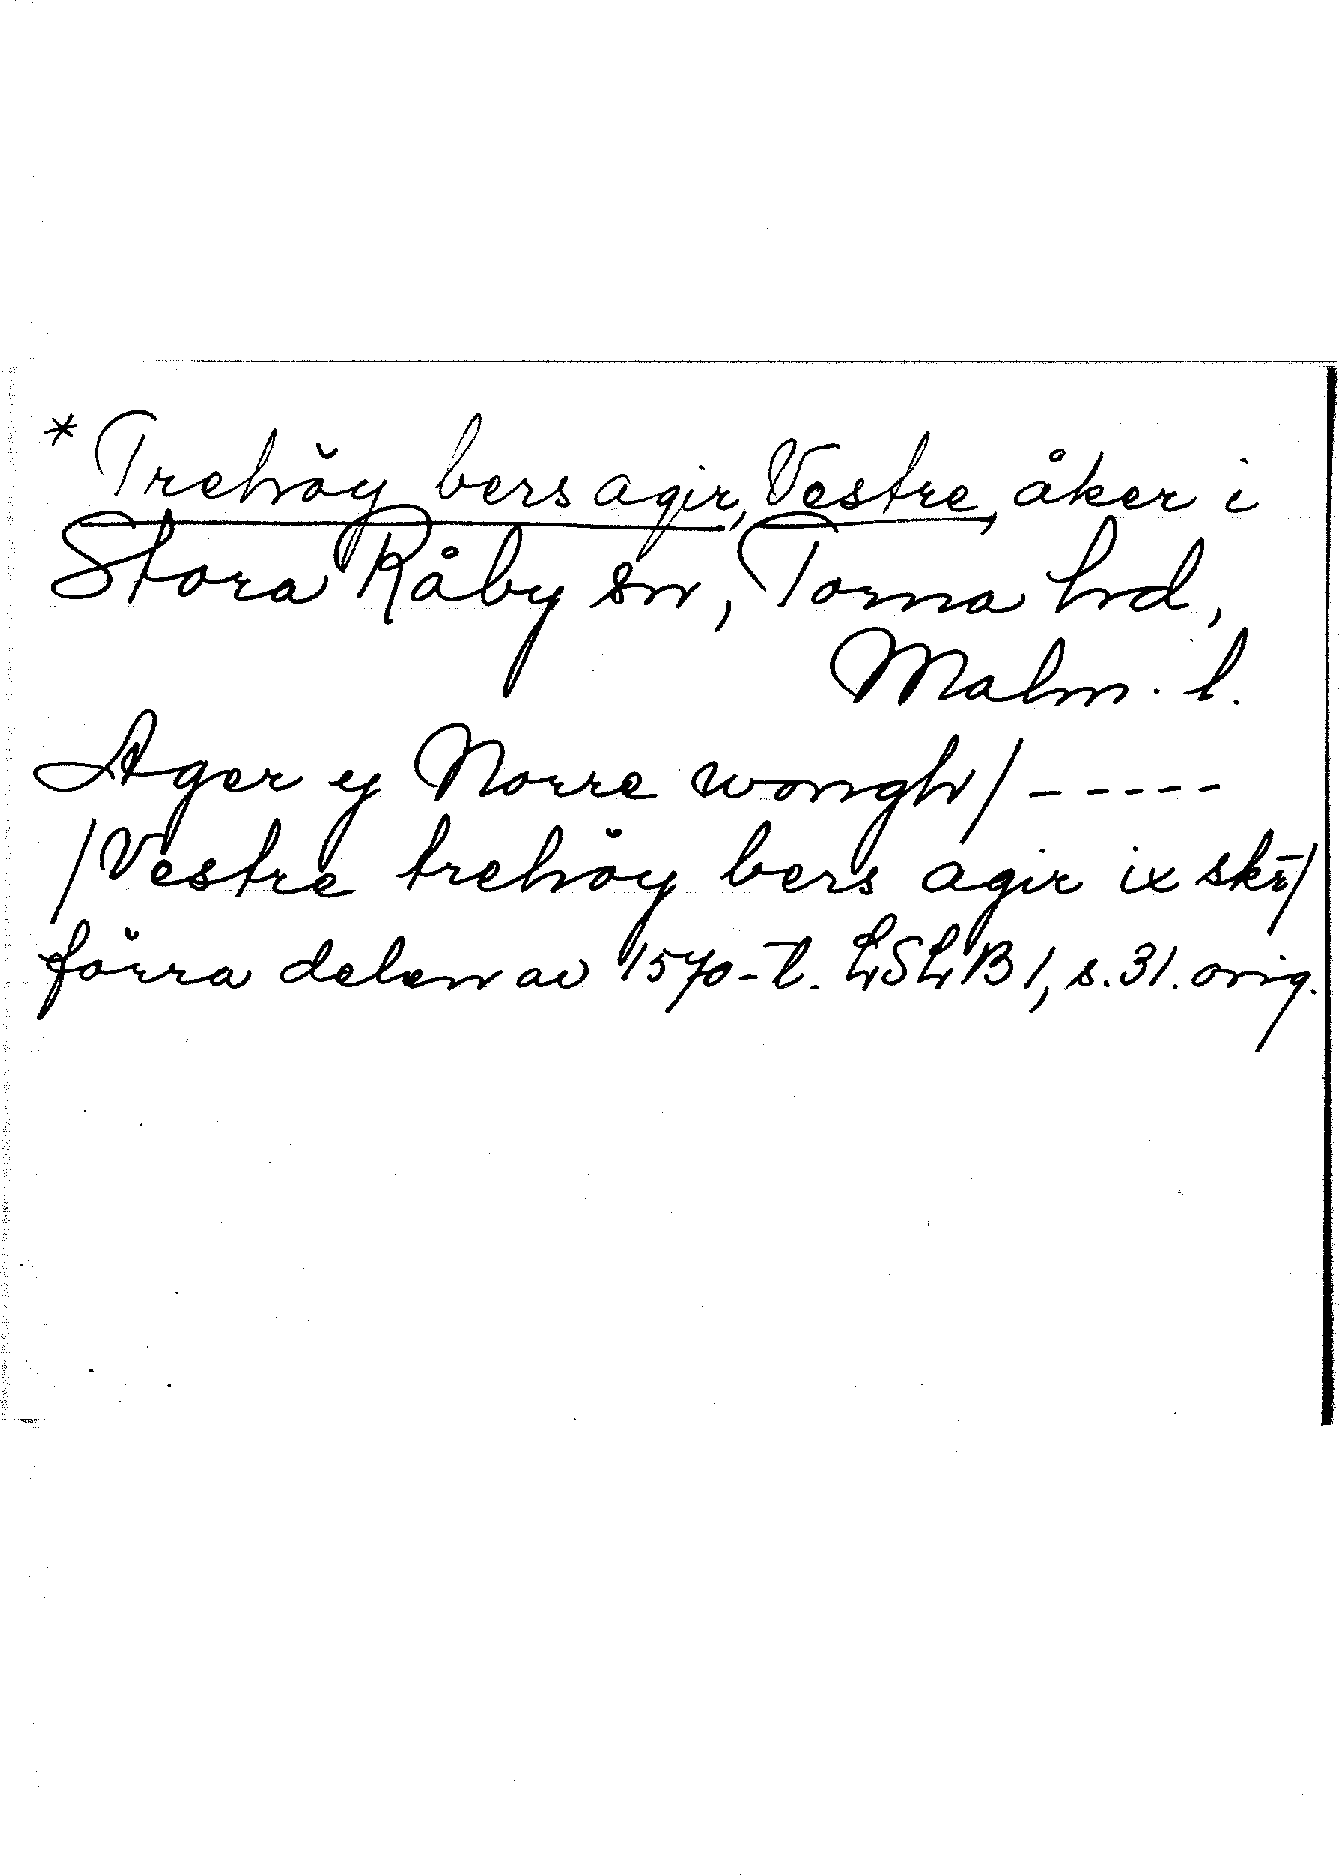 * Trehöy bers agir, Vestre, åker i
Stora Råby sn, Torna hd,
Malm. l.
Ager ey Norre wongh/ -----
/Vestre trehöy bers agir ix skr̄/
förra delen av 1570-t. LSLB1, s. 31. orig.